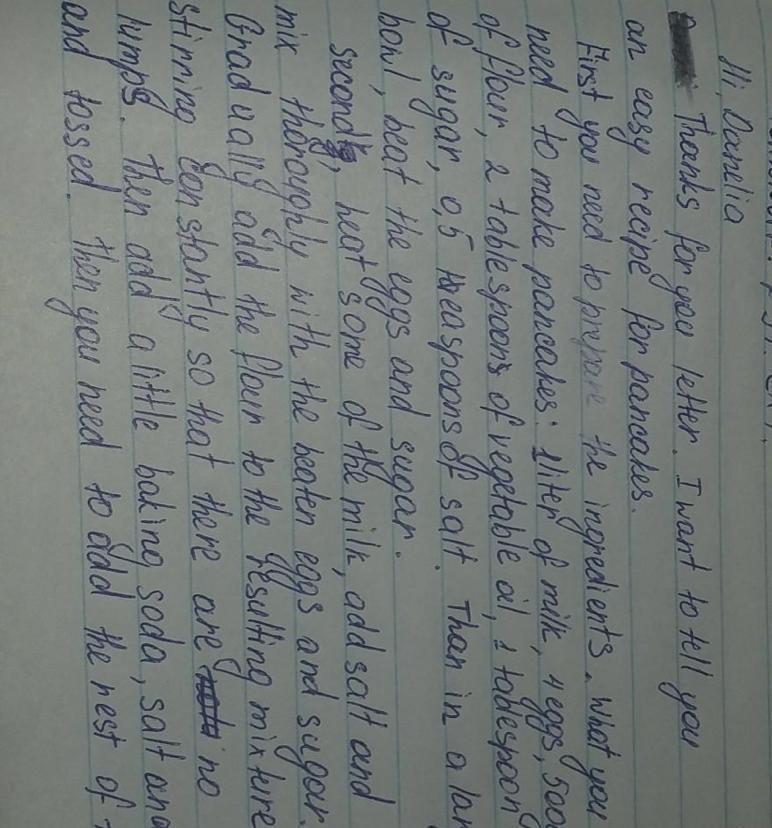 Hi, Danelia
Thanks for you letter. I want to tell you
an easy recipe for pancakes.
First you need to prepare the ingredients. What you
need to make pancakes: 1 liter of milk, 4 eggs, 500
of flour, 2 tablespoons of vegetable oil, 1 tablespoon
of sugar, 0,5 teaspoons of salt. Than in a lar
bowl, beat the eggs and sugar.
Second, heat some of the milk, add salt and
mix thoroughly with the beaten eggs and sugar.
Gradually add the flour to the resulting mixture
stirring constantly so that there are no
lumps. Then add a little baking soda, salt and
and tossed. Then you need to add the rest of